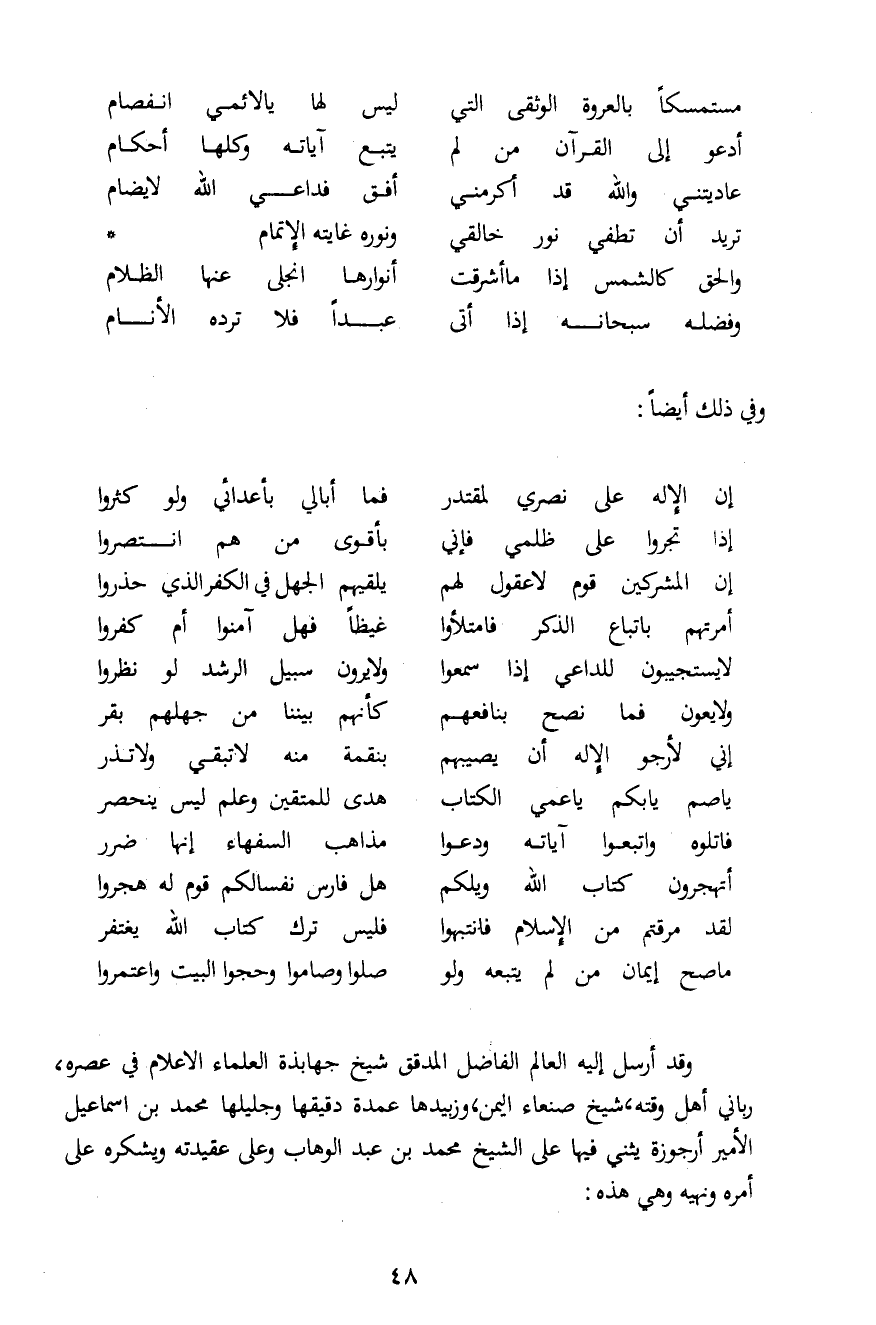 مستمسكاً بالعروة الوثقى التي ليس لها يالائمـي انـفصام
أدعو إلى القـرآن من لم يتبـع آياتـه وكلهـا أحكـام
عاديتنـي والله قد أكرمنـي أفـق فداعـــي الله لايضام
تريد أن تطفي نور خالقي ونوره غايته الإتمام *
والحق كالشمس إذا ماأشرقت أنوارهـا انجلى عنها الظـلام
وفضلـه سبحانـــه إذا أتى عبـــداً فلا ترده الأنـــام
وفي ذلك أيضاً :
إن الإله على نصري لمقتدر فما أبالي بأعدائي ولو كثروا
إذا تجروا على ظلمي فإني بأقـوى من هم انـــتصروا
إن المشركين قوم لاعقول لهم يلقيهم الجهل في الكفر الذي حذروا
أمرتهم باتباع الذكر فامتلأوا غيظاً فهل آمنوا أم كفروا
لايستجيبون للداعي إذا سمعوا ولايرون سبيل الرشد لو نظروا
ولايعون فما نصح بنافعهـم كأنهم بيننا من جهلهم بقر
إني لأرجو الإله أن يصيبهم بنقمة منه لاتبقـي ولاتـذر
ياصم يابكم ياعمي الكتاب هدى للمتقين وعلم ليس ينحصر
فاتلوه واتبعـوا آياتـه ودعـوا مذاهب السفهاء إنها ضرر
أتهجرون كتاب الله ويلكم هل فارس نفسالكم قوم له هجروا
لقد مرقتم من الإسلام فانتبهوا فليس ترك كتاب الله يغتفر
ماصح إيمان من لم يتبعه ولو صلوا وصاموا وحجوا البيت واعتمروا
وقد أرسل إليه العالم الفاضل المدقق شيخ جهابذة العلماء الاعلام في عصره،
رباني أهل وقته، شيخ صنعاء اليمن، وزبيدها عمدة دقيقها وجليلها محمد بن اسماعيل
الأمير أرجوزة يثني فيها على الشيخ محمد بن عبد الوهاب وعلى عقيدته ويشكره على
أمره ونهيه وهي هذه :
٤٨